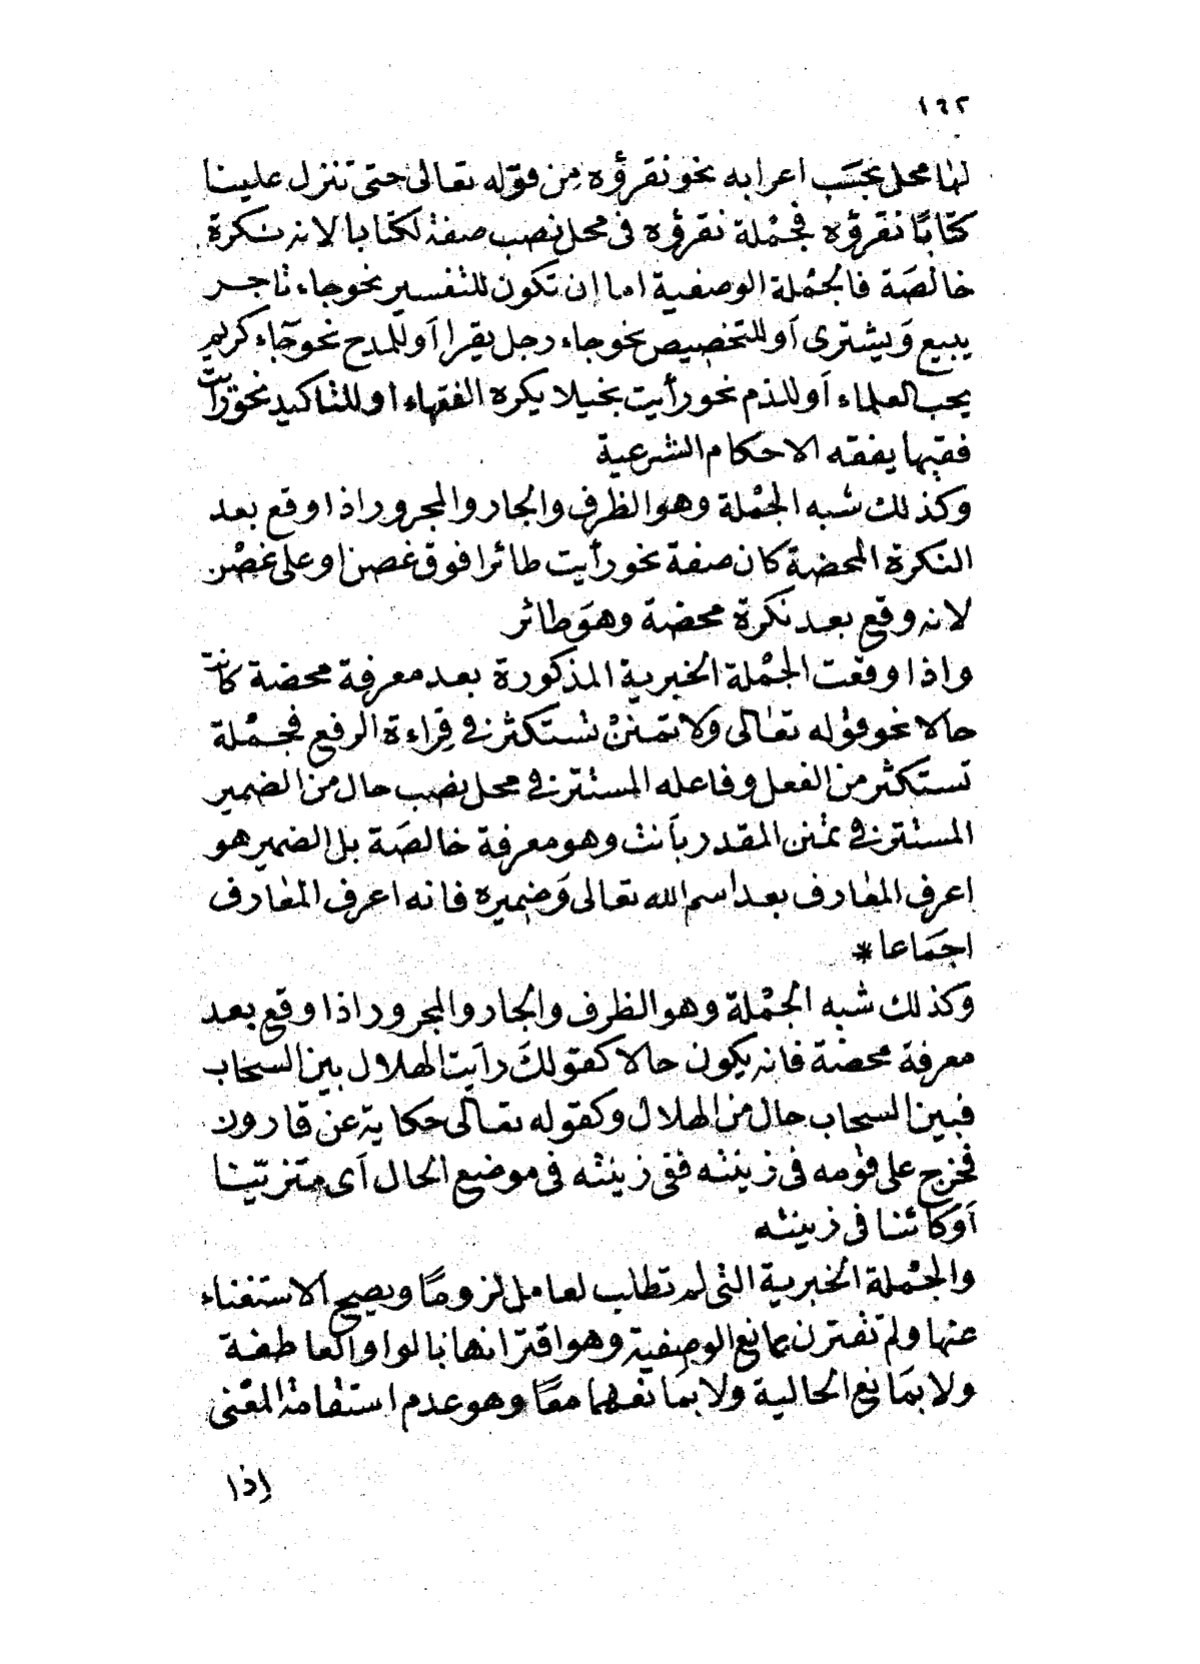 ١٦٢
لها محل بحسَب اعرابه نحو نقرؤه مِن قوله تعالى حتى تنزل علينا
كتابًا نقرؤه فجُمْلة نقرؤه فى محل نصب صفة لكتابا لانه نكرة
خالصَة فالجُمْلة الوصفية اما ان تكون للتفسير نحو جاء تاجر
يبيع وَيشترى اَو للتخصيص نحو جاء رجل يقرا اَو للمدح نحو جَاء كريم
يحب العلماء اَو للذم نحو رأيت بخيلا يكره الفقهاء او للتاكيد نحو رَأيت
فقيها يفقه الاحكام الشرعية
وكذلك شبه الجُمْلة وهو الظرف والجار والمجرور اذا وقع بعد
النكرة المحضة كان صفة نحو رأيت طائرا فوق غصن او على غصْن
لانه وقع بعد نكرة محضة وهوَ طائر
واذا وقعت الجُمْلة الخبرية المذكورة بعد معرفة محضة كانت
حالا نحو قوله تعالى ولا تمننْ تستكثر فى قِراءة الرفع فجُمْلة
تستكثر من الفعل وفاعله المستتر فى محل نصب حال من الضمير
المستتر فى تمنن المقدر باَنت وهو معرفة خالصَة بل الضمير هو
اعرف المعارف بعد اسم الله تعالى وَضميره فانه اعرف المعارف
اجمَاعا *
وكذلك شبه الجُمْلة وهو الظرف والجار والمجرور اذا وقع بعد
معرفة محضة فانه يكون حالا كقولكَ رايت الهلال بين السحاب
فبين السحاب حال من الهلال وكقوله تعالى حكاية عن قارون
فخرج على قومه فى زينته ففى زينته فى موضع الحال اَى متزيّنا
اَو كائنا فى زينته
والجُمْلة الخبرية التى لم تطلب لعامل لزومًا ويصح الاستغناء
عنها ولم تقترن بمانع الوصفية وهو اقترانها بالواو العاطفة
ولا بمَانع الحالية ولا بمَانعهما معًا وهو عدم استقامة المعْنى
اِذا